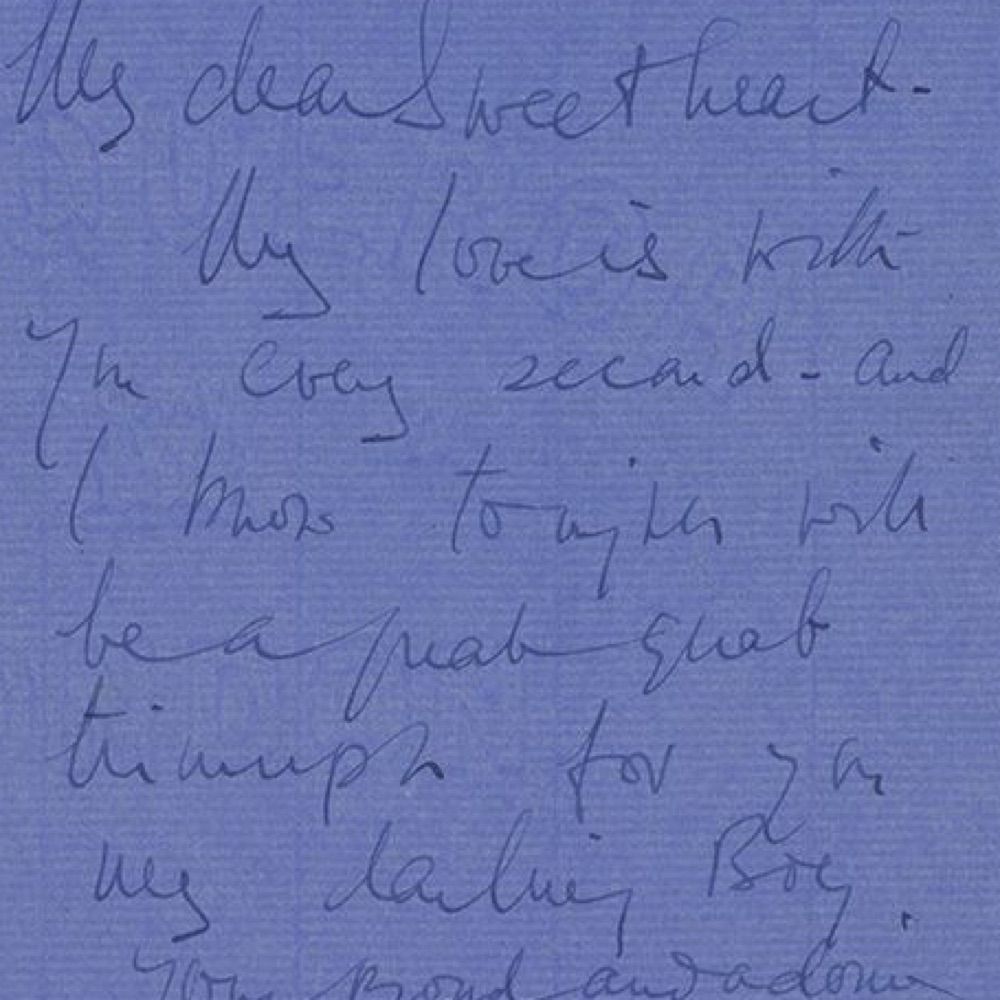 My dear Sweetheart -
My love is with
you every second - and
I know tonight will
be a great great
triumph for you
my darling Boy.
Your proud and adoring